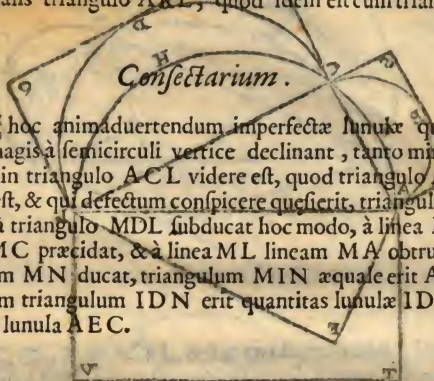 triangulo
quod idem est cum
Consectarium.
hoc animaduertendum imperfectæ lunulæ
à semicirculi vertice declinant, tanto
in triangulo ACL videre est, quod triangulo
est, & qui defectum conspicere quesierit,
triangulo MDL subducat hoc modo, à
MC præcidat, & à linea ML lineam MA
MN ducat, triangulum MIN æquale erit
triangulum IDN erit quantitas lunulæ
lunula AEC.